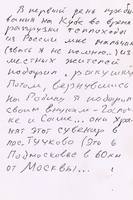 В первый день пребы
вания на Кубе во время
разгрузки теплохода
из России мне мальчик
(звать я не помню) из
местных жителей
подарил ракушку
Потом, вернувшись
на Родину я подарил
своим внукам - Даше
и Саше... она хра-
нят этот сувенир в
пос Тучково (Это в
Подмосковье в 60км
от Москвы)...